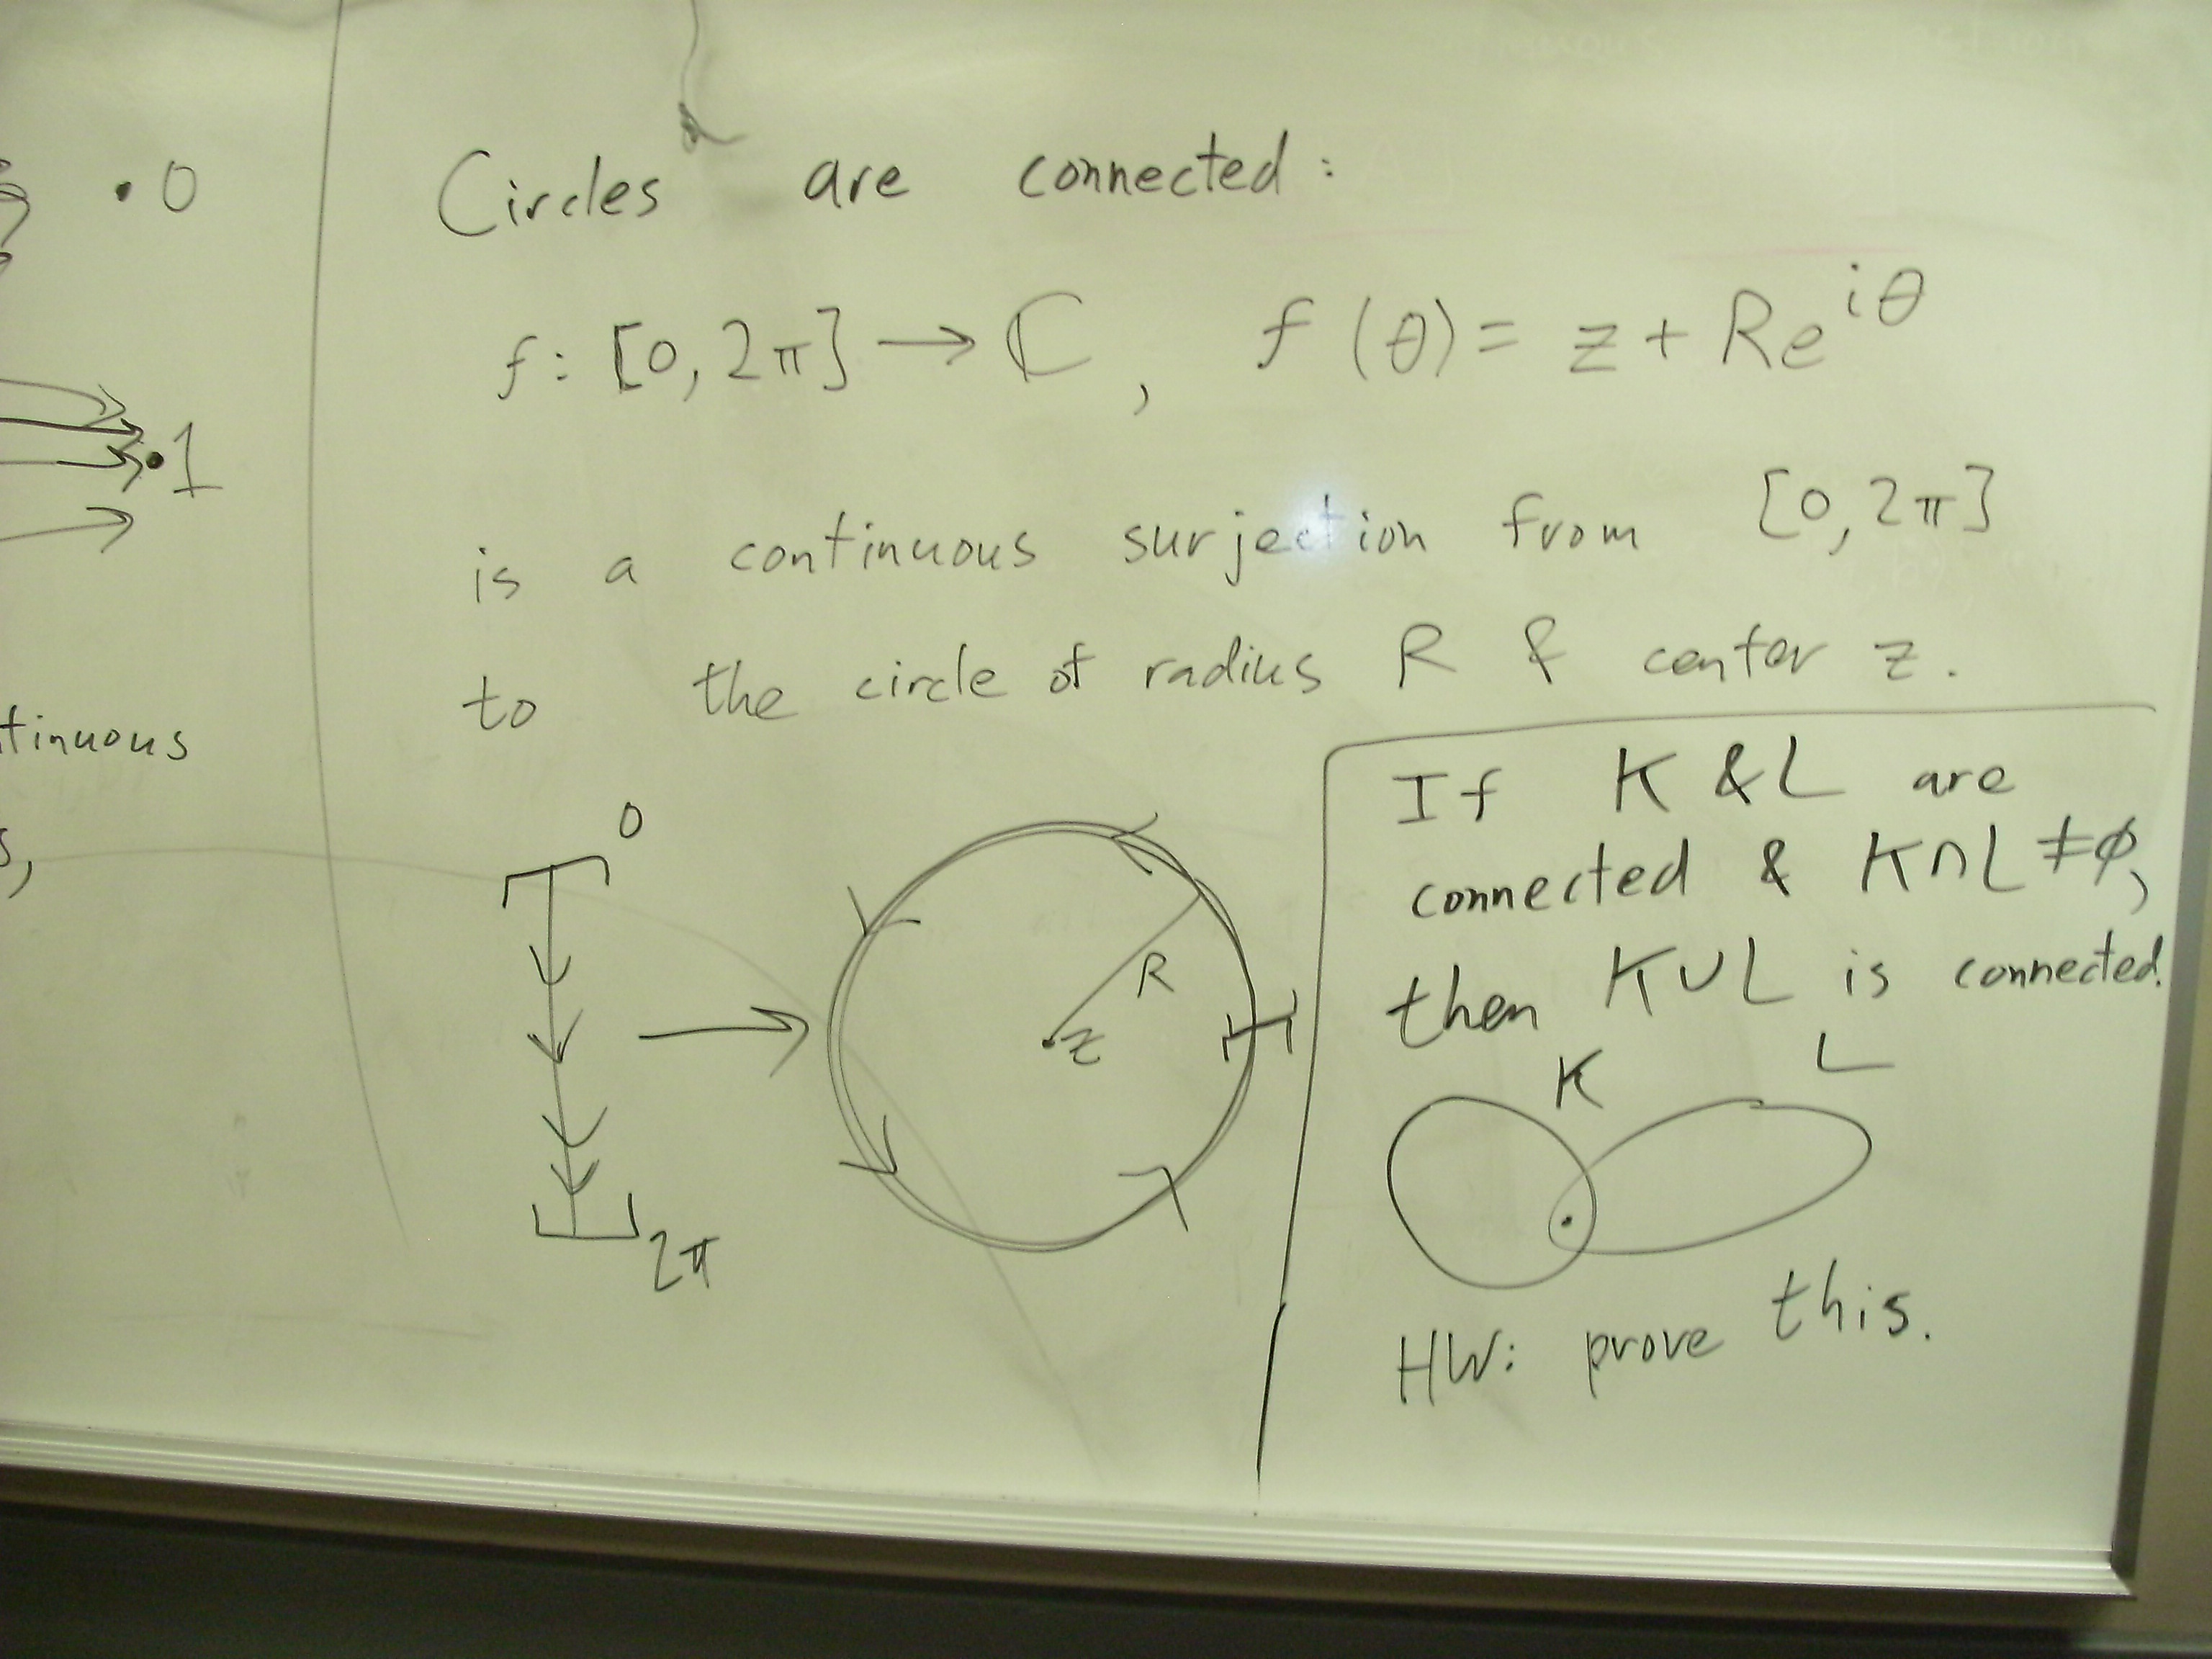 • 0
• 1
tinuous
s,
Circles are connected:
f: [0, 2π] → ℂ, f(θ) = z + Re^{iθ}
is a continuous surjection from [0, 2π]
to the circle of radius R & center z.
0
2π
R
z
If K & L are
connected & K∩L ≠ ∅,
then K∪L is connected.
K L
HW: prove this.